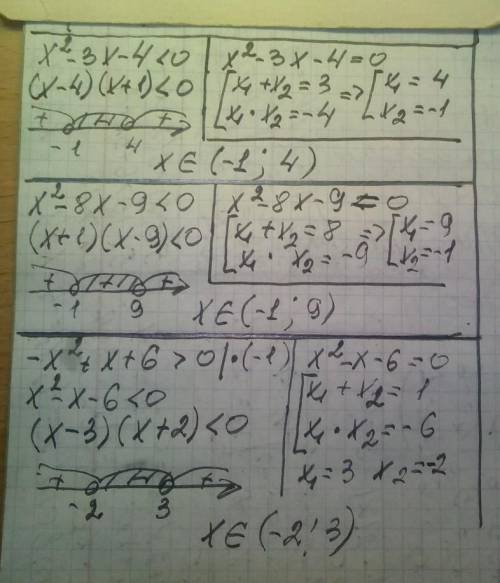 x² - 3x - 4 < 0
(x-4)(x+1) < 0
+ - +
-1 4
x² - 3x - 4 = 0
[x₁ + x₂ = 3 => [x₁ = 4
x₁ · x₂ = -4 x₂ = -1
x ∈ (-1; 4)
x² - 8x - 9 < 0
(x+1)(x-9) < 0
-1 9
x² - 8x - 9 = 0
[x₁ + x₂ = 8 => [x₁ = 9
x₁ · x₂ = -9 x₂ = -1
x ∈ (-1; 9)
-x² + x + 6 > 0 | · (-1)
x² - x - 6 < 0
(x-3)(x+2) < 0
+ - +
-2 3
x² - x - 6 = 0
[x₁ + x₂ = 1
x₁ · x₂ = -6
x₁ = 3 x₂ = -2
x ∈ (-2; 3)